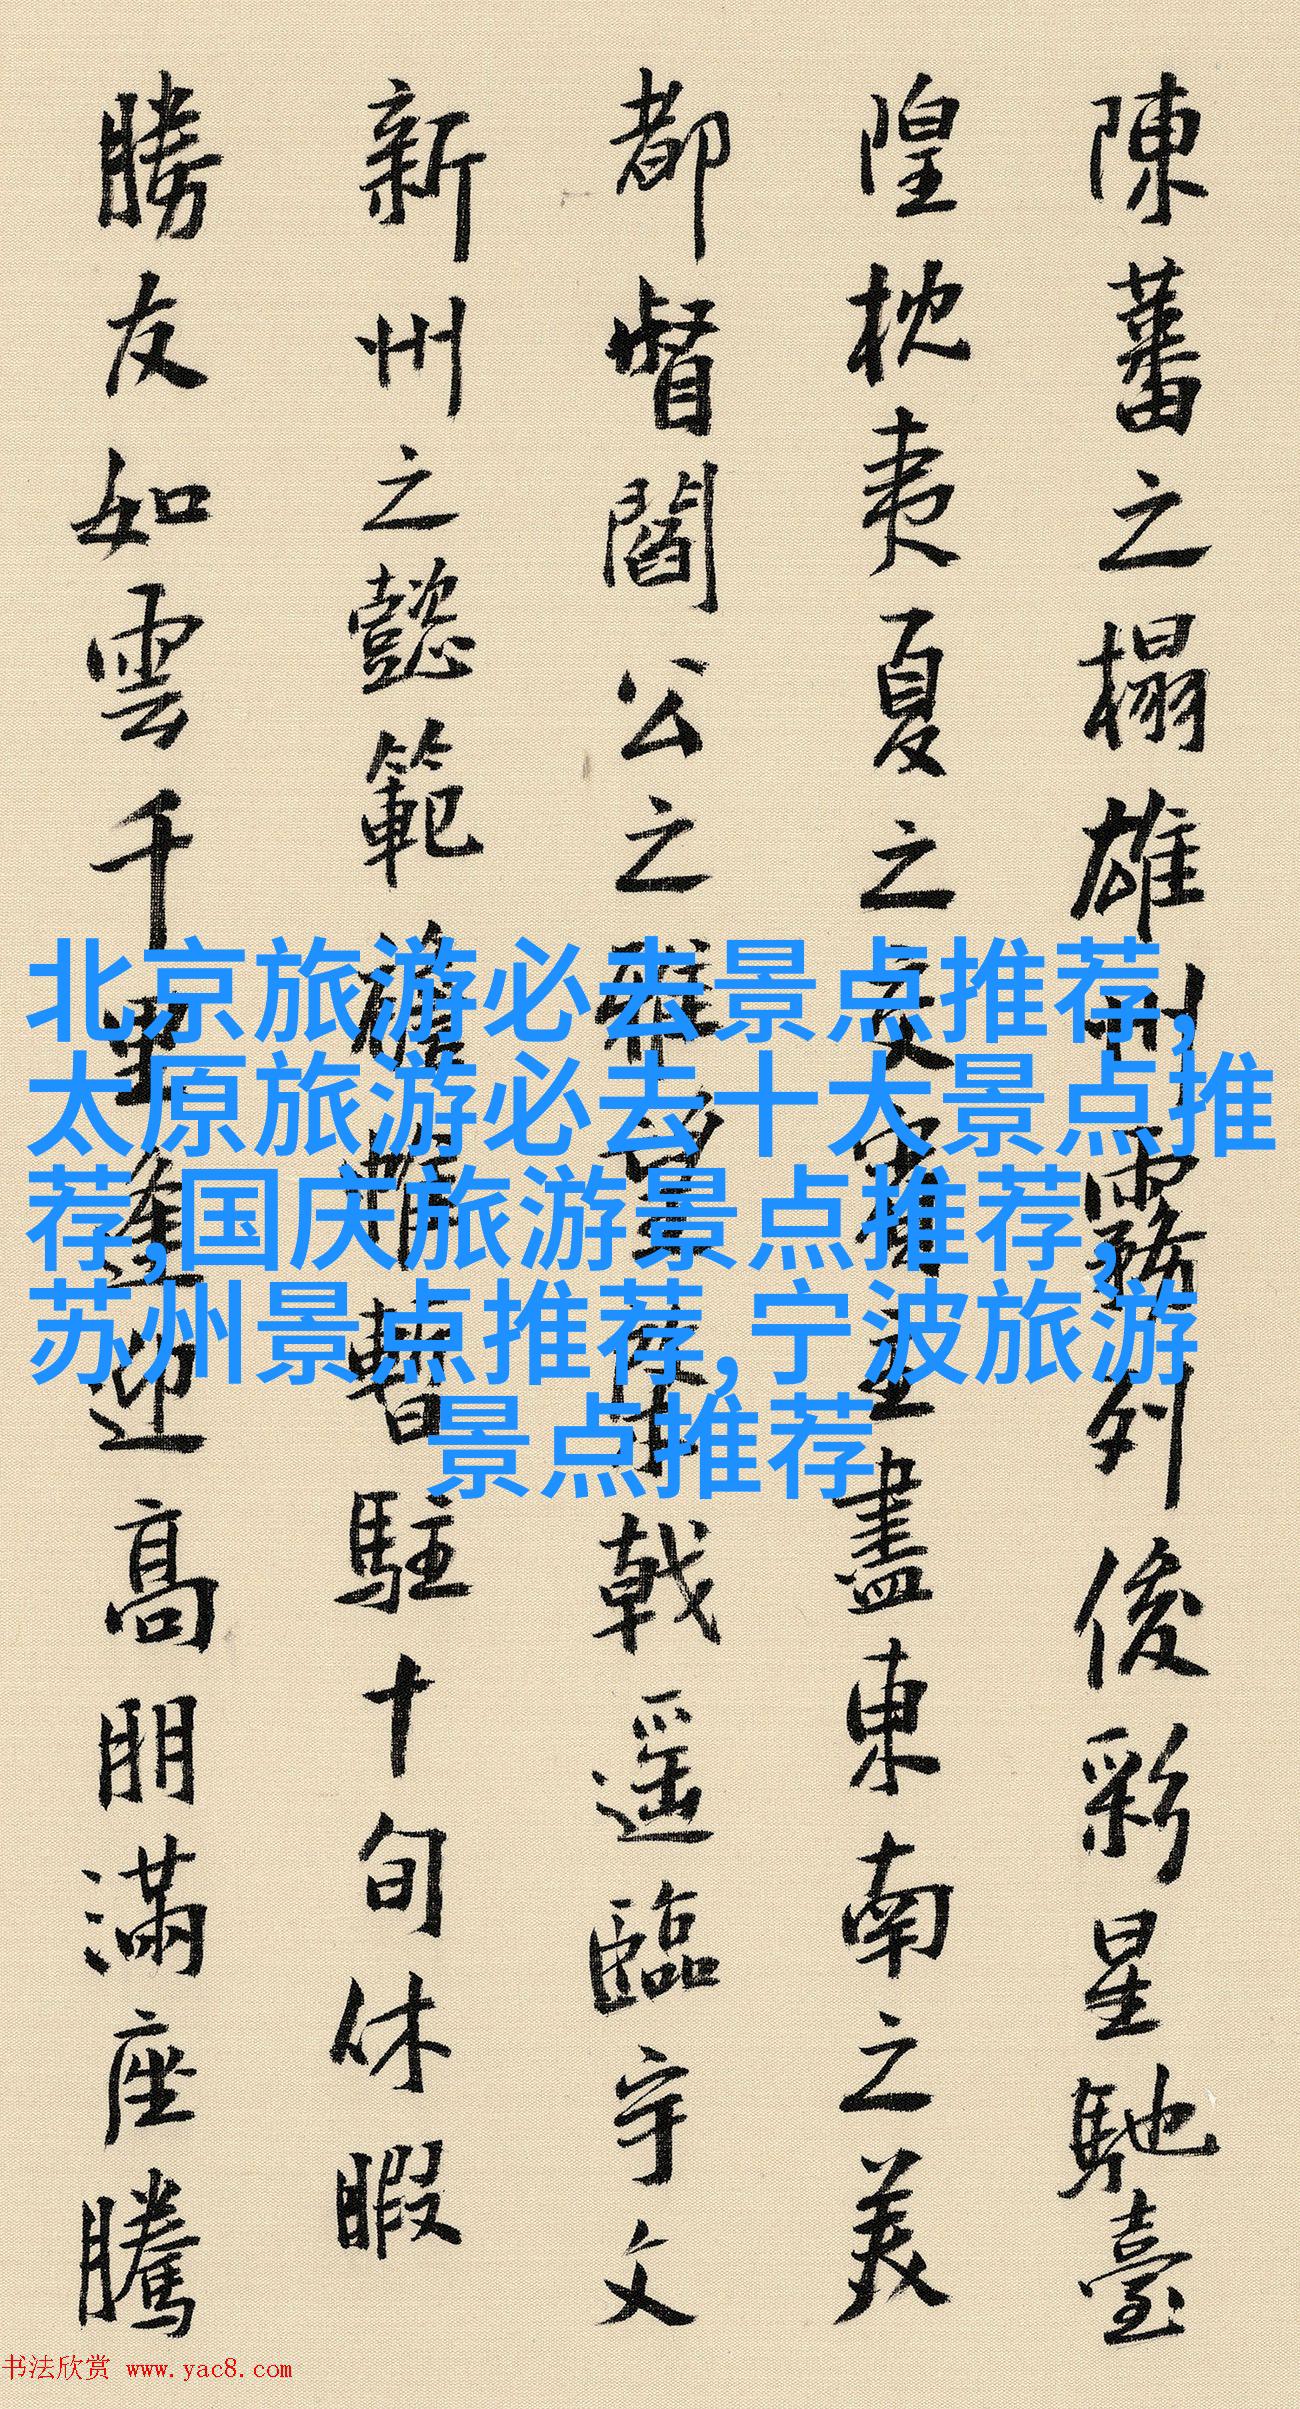 陳蕃之榻雄州霧列俊彩星馳臺
隍枕夷夏之交賓主盡東南之美
都督閻公之雅望棨戟遥臨宇文
新州之懿範襜帷暫駐十旬休暇
勝友如雲千里逢迎高朋滿座騰
北京旅游必去景点推荐,
太原旅游必去十大景点推
荐,国庆旅游景点推荐,
苏州景点推荐,宁波旅游
景点推荐
书法欣赏 www.yac8.com